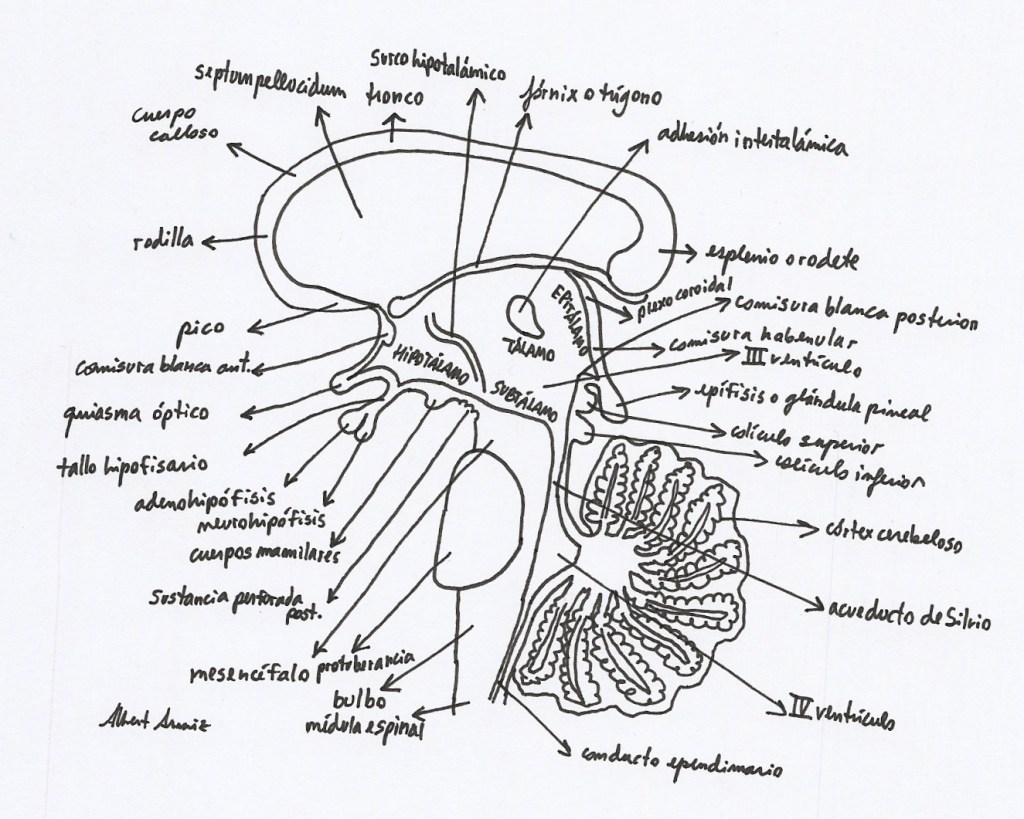 surco hipotalámico
septum pellocidum
tronco
fórnix o trígono
cuerpo
calloso
adhesión intertalámica
rodilla
esplenio o rodete
plexo coroidal
EPITÁLAMO
comisura blanca posterior
pico
comisura habenular
TÁLAMO
HIPOTÁLAMO
III ventrículo
comisura blanca ant.
SUBTÁLAMO
epífisis o glándula pineal
quiasma óptico
colículo superior
colículo inferior
tallo hipofisario
adenohipófisis
neurohipófisis
córtex cerebeloso
cuerpos mamilares
sustancia perforada
post.
acueducto de Silvio
mesencéfalo
protuberancia
bulbo
IV ventrículo
médula espinal
Albert Arnaiz
conducto ependimario